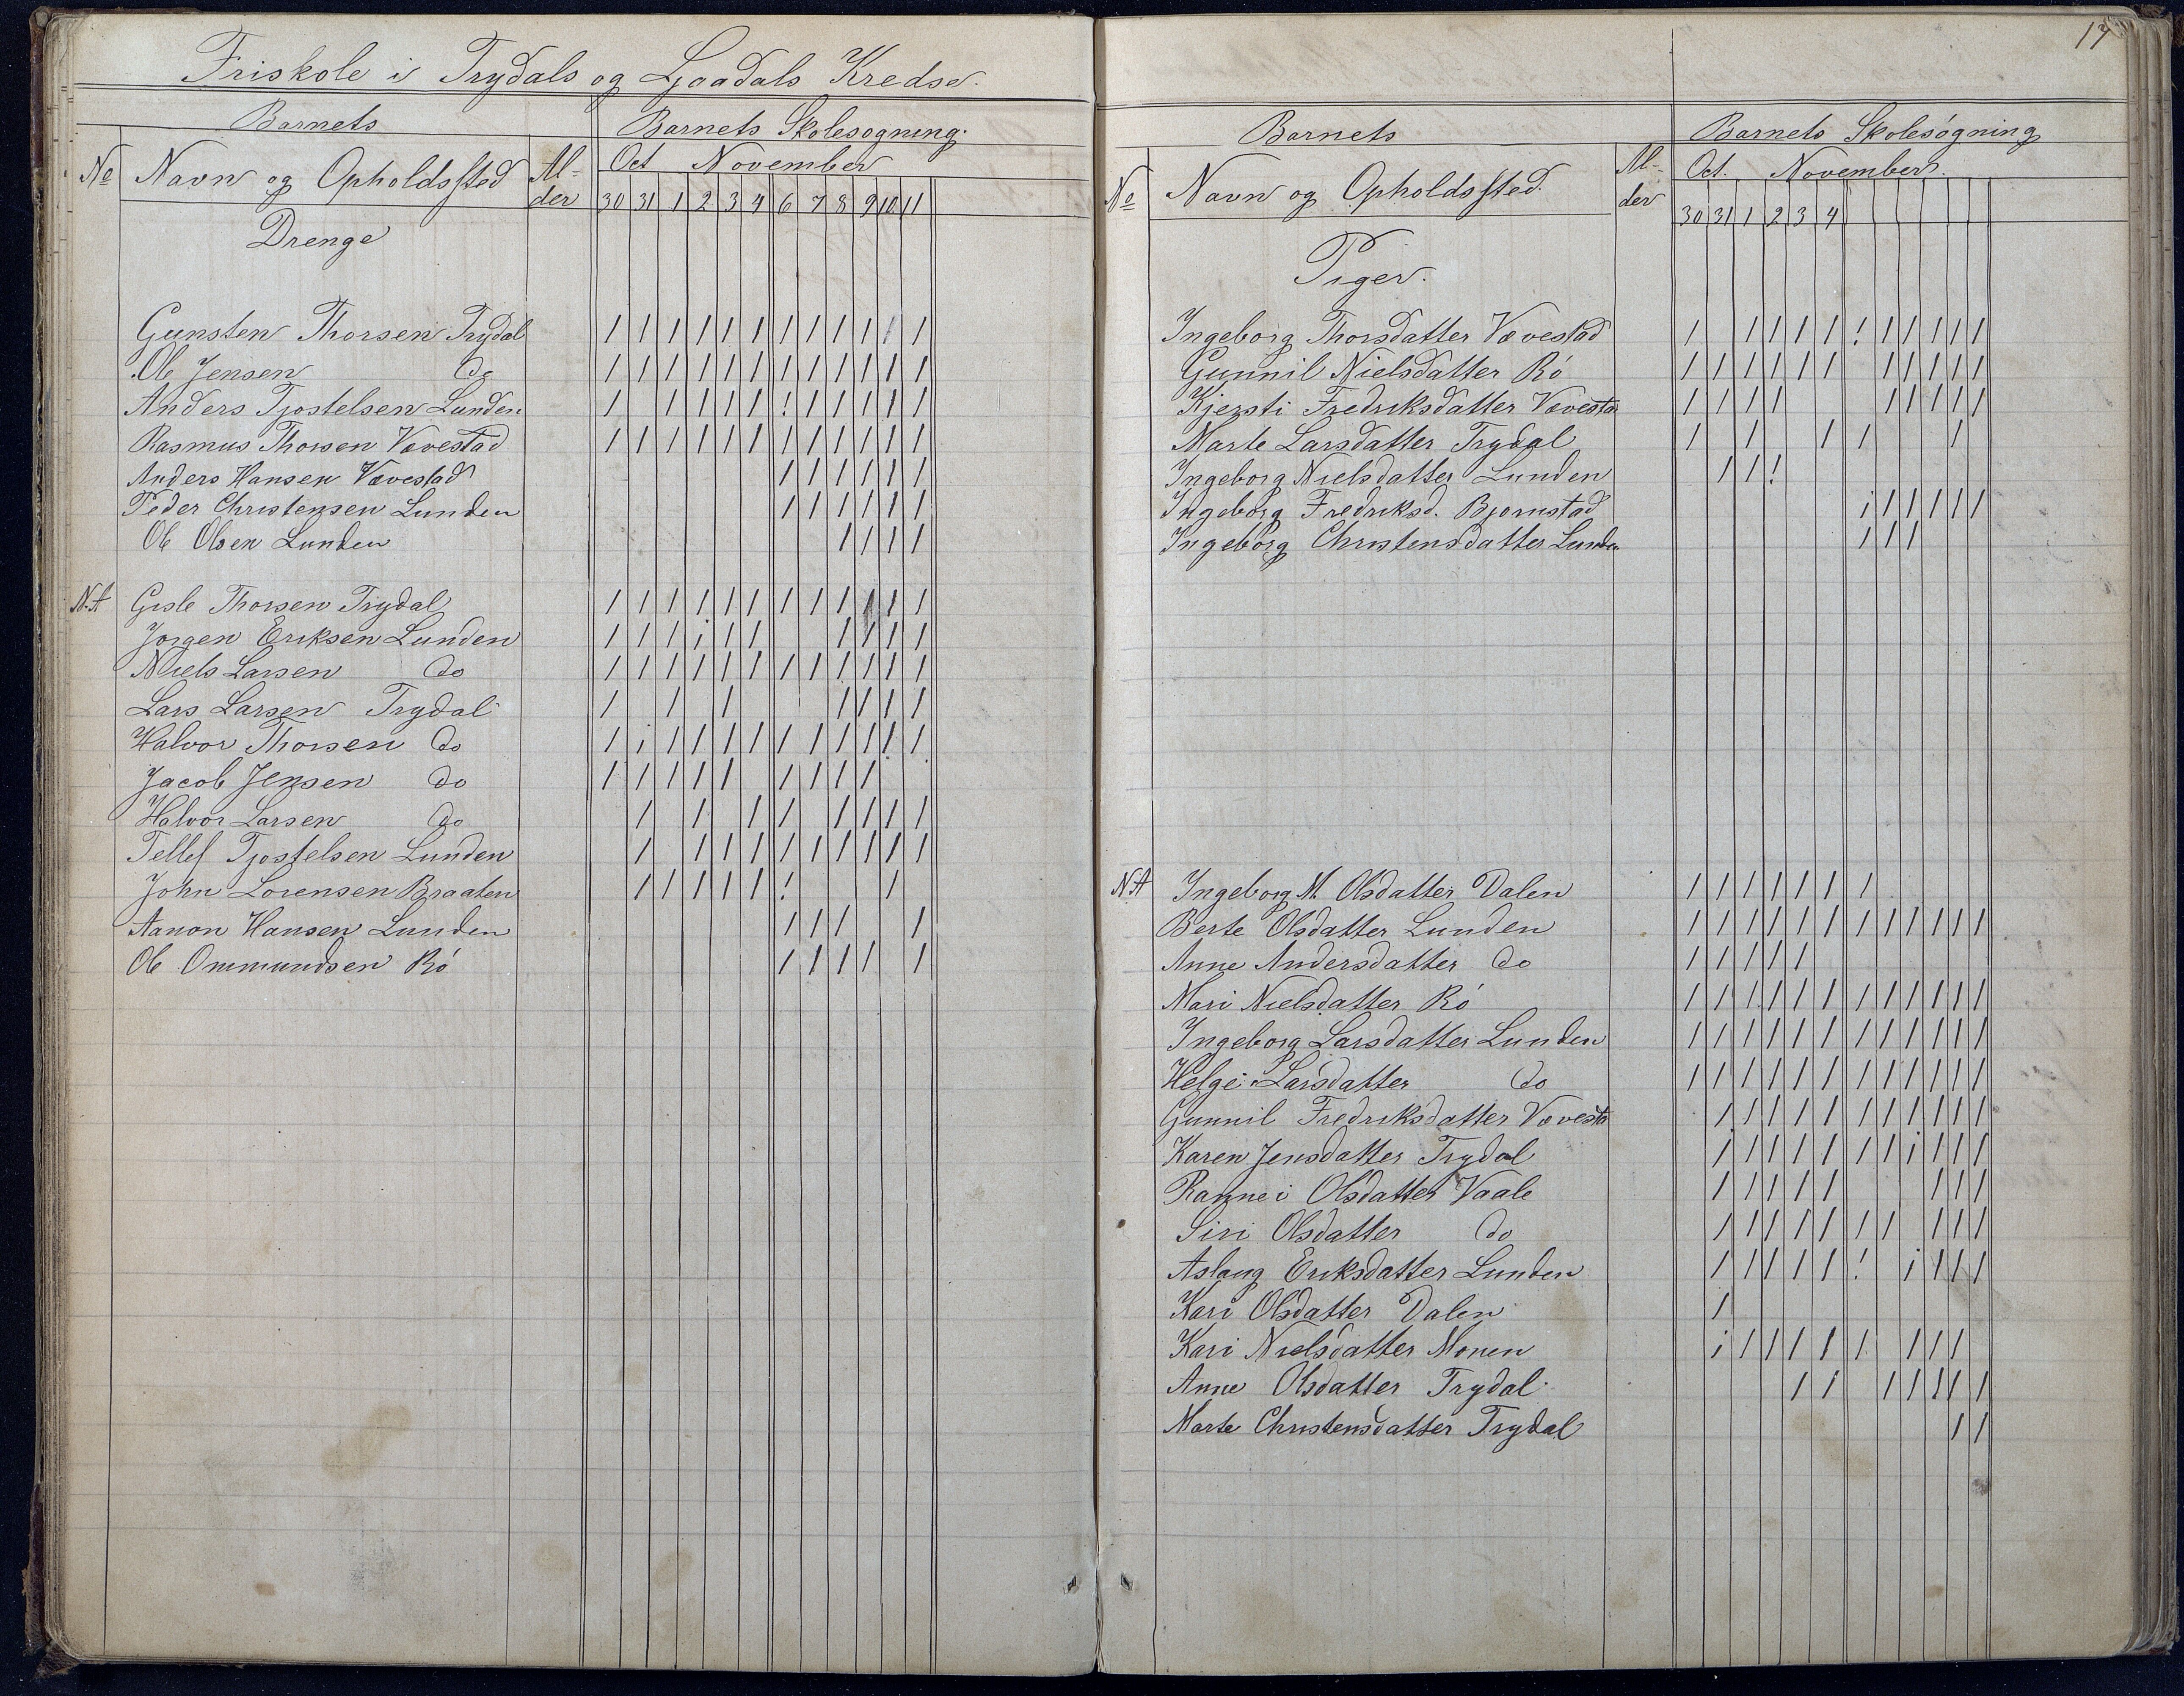 Friskole i Trydals og Ljaadals Kredse.
Barnets
Barnets Skolesøgning.
No Navn og Opholdssted Al-der
Oct November
30 31 1 2 3 4 6 7 8 9 10 11
Drenge
Gunsten Thorsen Trydal / / / / / / / / / / / /
Ole Jensen do / / / / / / / / / / / /
Anders Tjostelsen Lunden / / / / / ! / / / / /
Rasmus Thorsen Vævestad / / / / / / / / / / / /
Anders Hansen Vævestad / / / / / /
Peder Christensen Lunden / / / / / /
Ole Olsen Lunden / / / /
N.A Gisle Thorsen Trydal / / / / / / / / / / / /
Jorgen Eriksen Lunden / / / / / / / / / /
Niels Larsen do / / / / / / / / / / / /
Lars Larsen Trydal / / / / / / /
Halvor Thorsen do / / / / / / / / / / / /
Jacob Jensen do / / / / / / / / /
Halvor Larsen do / / / / / / / /
Tellef Tjostelsen Lunden / / / / / / / / / /
John Lorensen Braaten / / / / / ! /
Aanon Hansen Lunden / / / /
Ole Ommundsen Rö / / / / /
17
Barnets
Barnets Skolesøgning
No Navn og Opholdssted. Al-der
Oct. November.
30 31 1 2 3 4
Piger.
Ingeborg Thorsdatter Vævestad / / / / / ! / / / / /
Gunnil Nielsdatter Rö / / / / / / / / / / /
Kjersti Fredriksdatter Vævesta / / / / / / / / /
Marte Larsdatter Trydal / / / / /
Ingeborg Nielsdatter Lunden / / !
Ingeborg Fredriksd. Bjornstad / / / / / /
Ingeborg Christensdatter Lunden / / /
N.A Ingeborg M. Olsdatter Dalen / / / / / / /
Berte Olsdatter Lunden / / / / / / / / / / / /
Anne Andersdatter do / / / / /
Mari Nielsdatter Rö / / / / / / / / / / / /
Ingeborg Larsdatter Lunden / / / / / / / / / / / /
Helge Larsdatter do / / / / / / / / / / / /
Gunnil Fredriksdatter Vævesta / / / / / / / / / / /
Karen Jensdatter Trydal / / / / / / / / / / /
Rannei Olsdatter Vaale / / / / / / / /
Siri Olsdatter do / / / / / / / / / /
Aslaug Eriksdatter Lunden / / / / / ! / / / /
Kari Olsdatter Dalen /
Kari Nielsdatter Monen / / / / / / / / /
Anne Olsdatter Trydal / / / / / / /
Marte Christensdatter Trydal / /